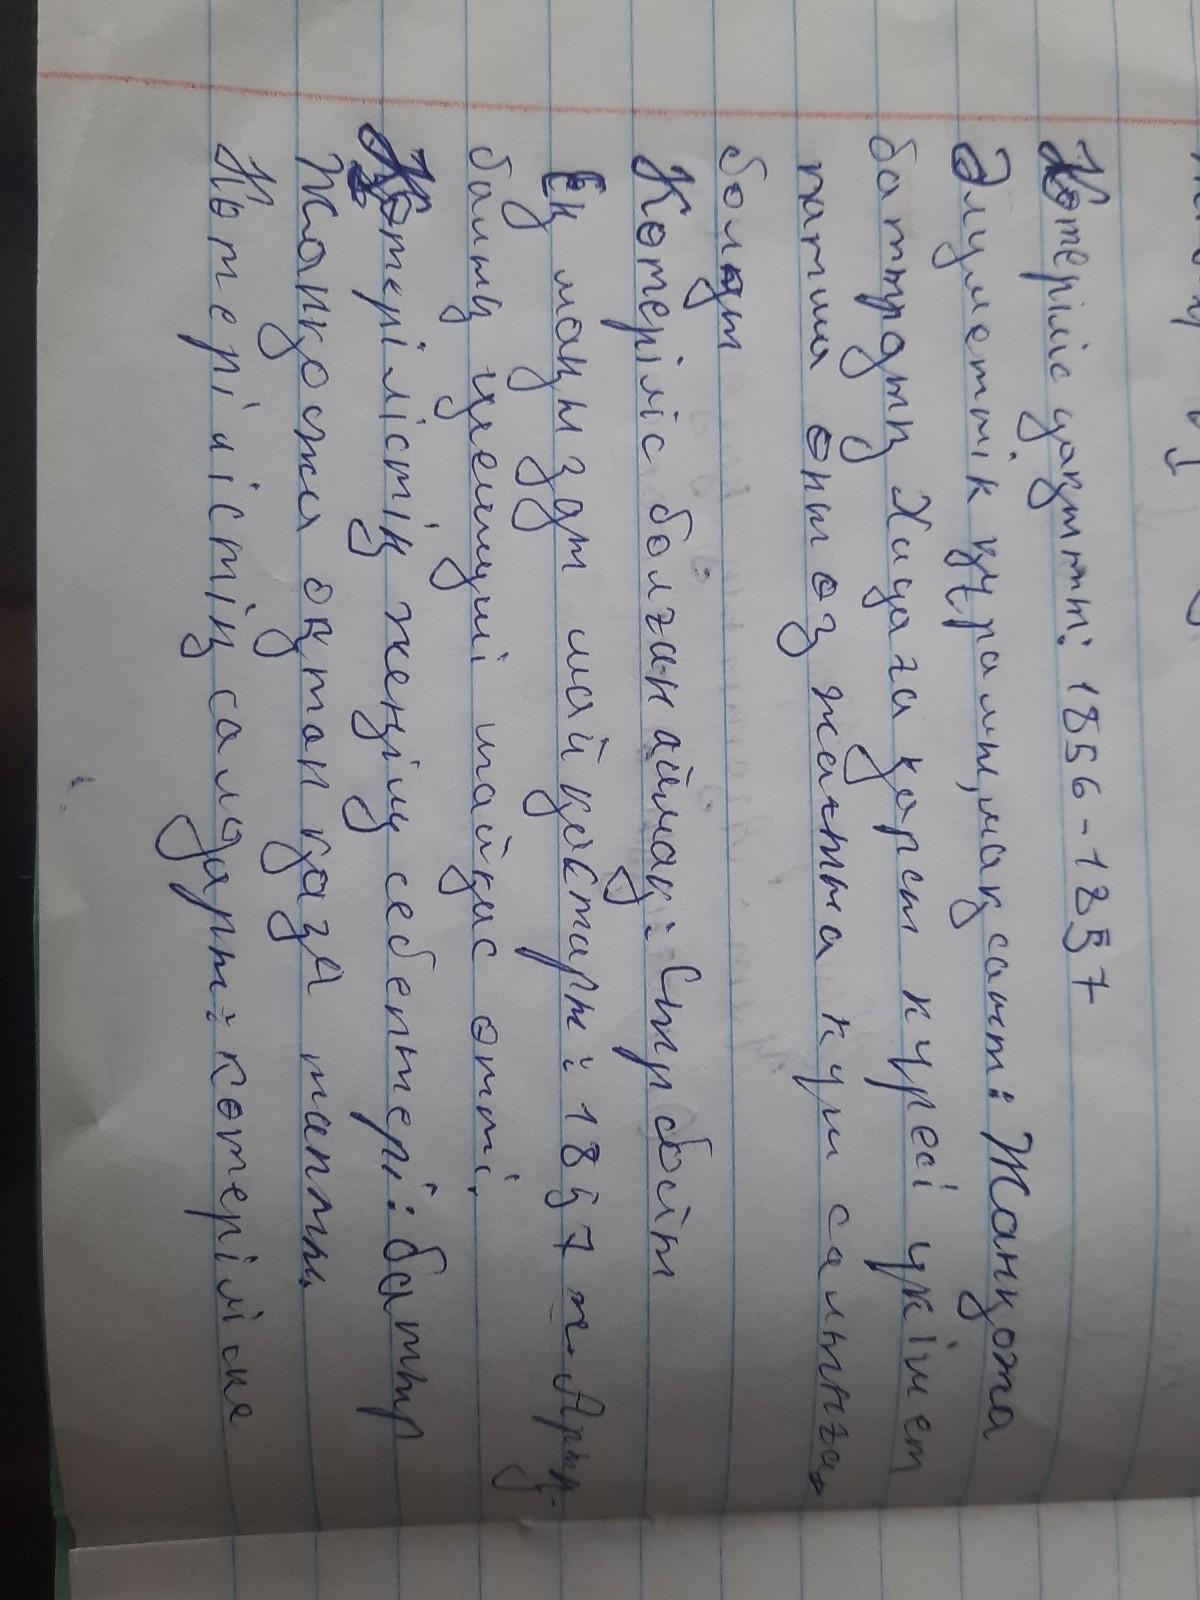 Көтеріліс уақыты: 1856-1857
Әлуметтік құрамы, мақсаты: Жанқожа
батырдың Хиуаға қарсы күресі үкімет
патша оны өз жағына күш салынған
болды
Көтеріліс болған аймақ: Сырбойы
Ең маңызды шайқастары: 1857 ж Арық-
балық шешуші шайқас өтті,
Көтерілістің жеңілу себептері: батыр
Жанқожа оқтан қаза тапты
Көтерілістің салдары: көтеріліске